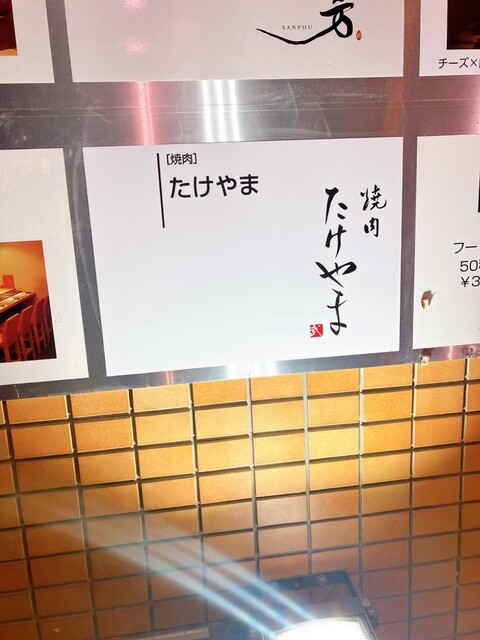 方
SANPOU
チーズ×
[焼肉]
たけやま
焼肉
たけやま
武
フー
50
¥3